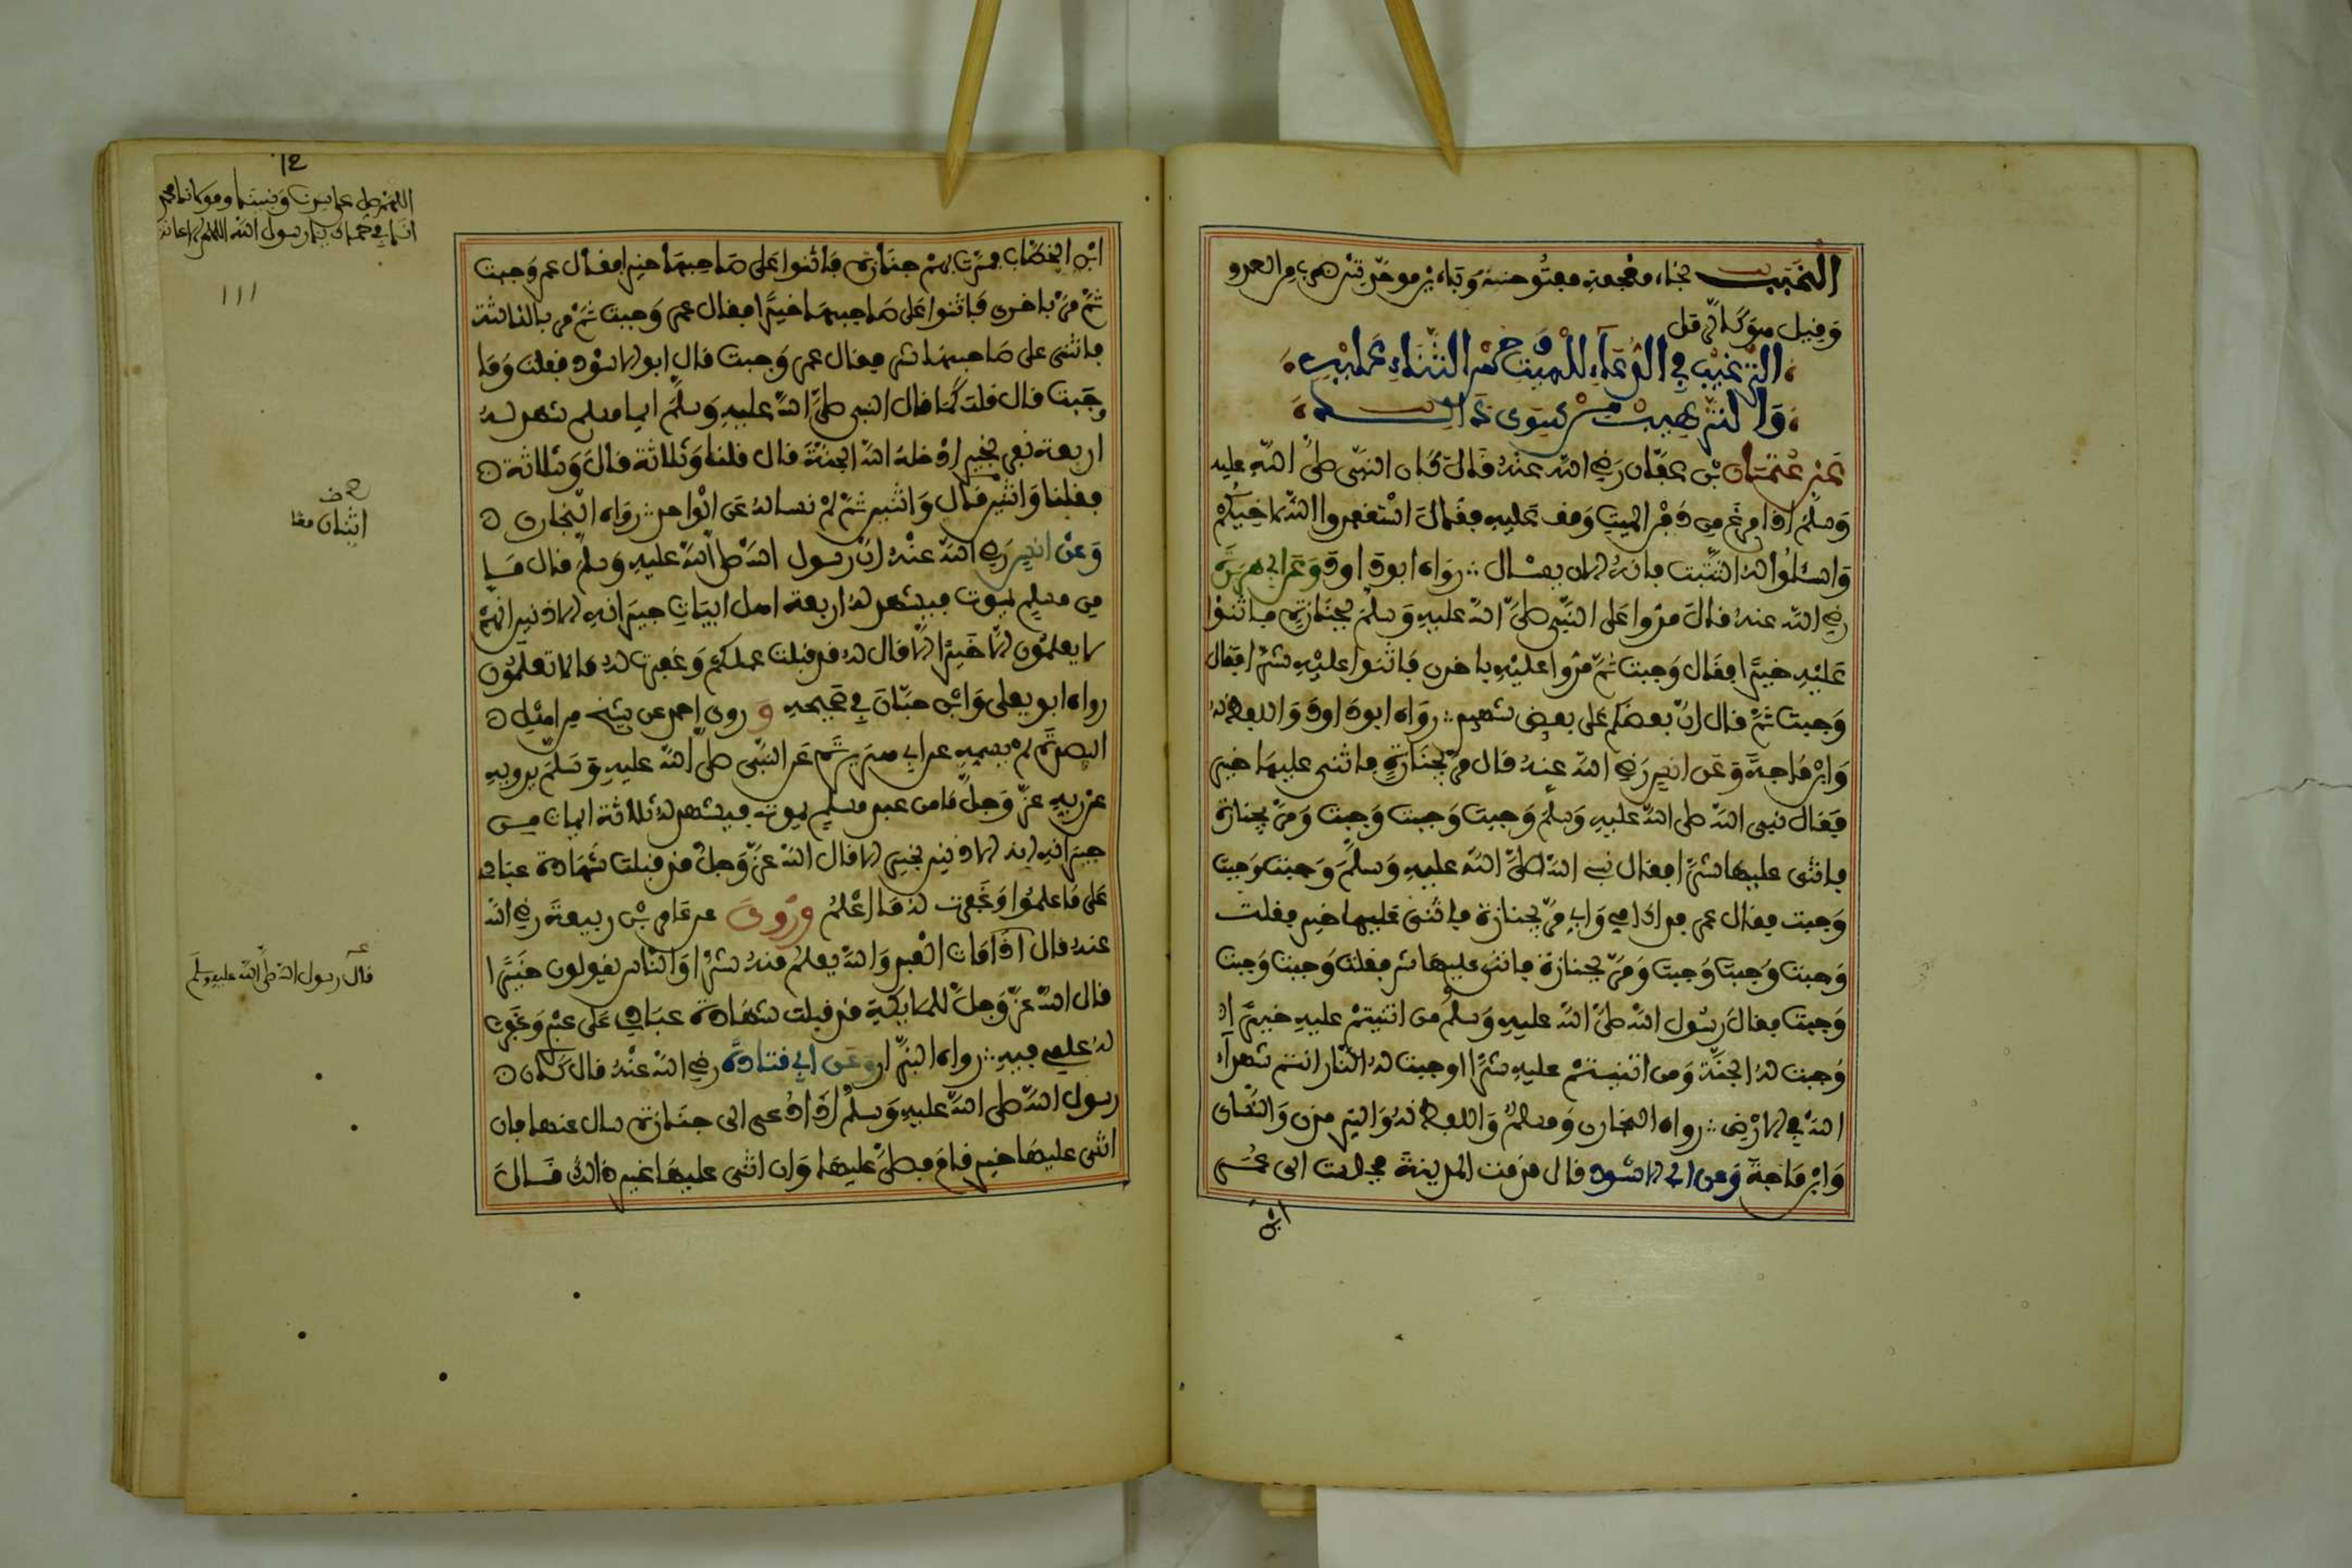 الخبب بخاء معجمة مفتوحة وباء يز موحدتين ضرب من العدو
وقيل هو كالرمل
الترغيب في الدعاء للميت وحسن الثناء عليه
والترهيب من سوى ذالك
عن عثمان بن عفان رضي الله عنه قال كان النبي صلى الله عليه
وسلم إذا فرغ من دفن الميت وقف عليه فقال استغفروا الله لأخيكم
واسئلوا له التثبت فإنه الآن يسال رواه ابو داود وعن ابي هريرة
رضي الله عنه قال مروا على النبي صلى الله عليه وسلم بجنازة فاثنوا
عليه خيرا فقال وجبت ثم مروا عليه باخرى فاثنوا عليه شرا فقال
وجبت ثم قال إن بعضكم على بعض شهيد رواه ابو داود واللفظ له
وابن ماجة وعن انس رضي الله عنه قال مر بجنازة فاثنى عليها خير
فقال نبي الله صلى الله عليه وسلم وجبت وجبت وجبت ومر بجنازة
فاثنى عليها شرا فقال نبي الله صلى الله عليه وسلم وجبت وجبت
وجبت فقال عمر فداك امي وابي مر بجنازة فاثنى عليها خير فقلت
وجبت وجبت وجبت ومر بجنازة فاثنى عليها شر فقلت وجبت وجبت
وجبت فقال رسول الله صلى الله عليه وسلم من اثنيتم عليه خيرا
وجبت له الجنة ومن اثنيتم عليه شرا اوجبت له النار انتم شهداء
الله في الارض رواه البخاري ومسلم واللفظ له والترمذي والنسائ
وابن ماجة وعن ابي الاسود قال قدمت المدينة فجلست الى عمر
ابن
ابن الخطاب فمرت بهم جنازة فاثنوا على صاحبها خيرا فقال عمر وجبت
ثم مر باخرى فاثنوا على صاحبها خيرا فقال عمر وجبت ثم مر بالثالثة
فاثنى على صاحبها شر فقال عمر وجبت قال ابو الاسود فقلت وما
وجبت قال قلت كما قال النبي صلى الله عليه وسلم ايما مسلم شهد له
اربعة نفر بخير ادخله الله الجنة قال قلنا وثلاثة قال وثلاثة
فقلنا واثنين قال واثنين ثم لم نساله عن الواحد رواه البخاري
وعن انس رضي الله عنه ان رسول الله صلى الله عليه وسلم قال ما
من مسلم يموت فيشهد له اربعة اهل ابيات جيرانه الادنين انهم
لا يعلمون الا خيرا الا قال الله قد قبلت علمكم وغفرت له ما لا تعلمون
رواه ابو يعلى وابن حبان في صحيحه وروى احمد عن شيخ من اهل
البصرة لم يسمه عن ابي هريرة عن النبي صلى الله عليه وسلم يرويه
عن ربه عز وجل ما من عبد مسلم يموت فيشهد له ثلاثة ابيات من
جيرانه الادنين بخير الا قال الله عز وجل قد قبلت شهادة عبادي
على ما علموا وغفرت له ما اعلم وروى عن عامر بن ربيعة رضي الله
عنه قال اذا مات العبد والله يعلم منه شرا والناس يقولون خيرا
قال الله عز وجل للملايكة قد قبلت شهادة عبادي على عبدي وغفرت
له علمي فيه رواه البزار وعن ابي قتادة رضي الله عنه قال كان
رسول الله صلى الله عليه وسلم إذا دعي الى جنازة سال عنها فإن
اثني عليها خير قام فصلى عليها وان اثني عليها غير ذالك قال
اثنان معا
قال رسول الله صلى الله عليه وسلم